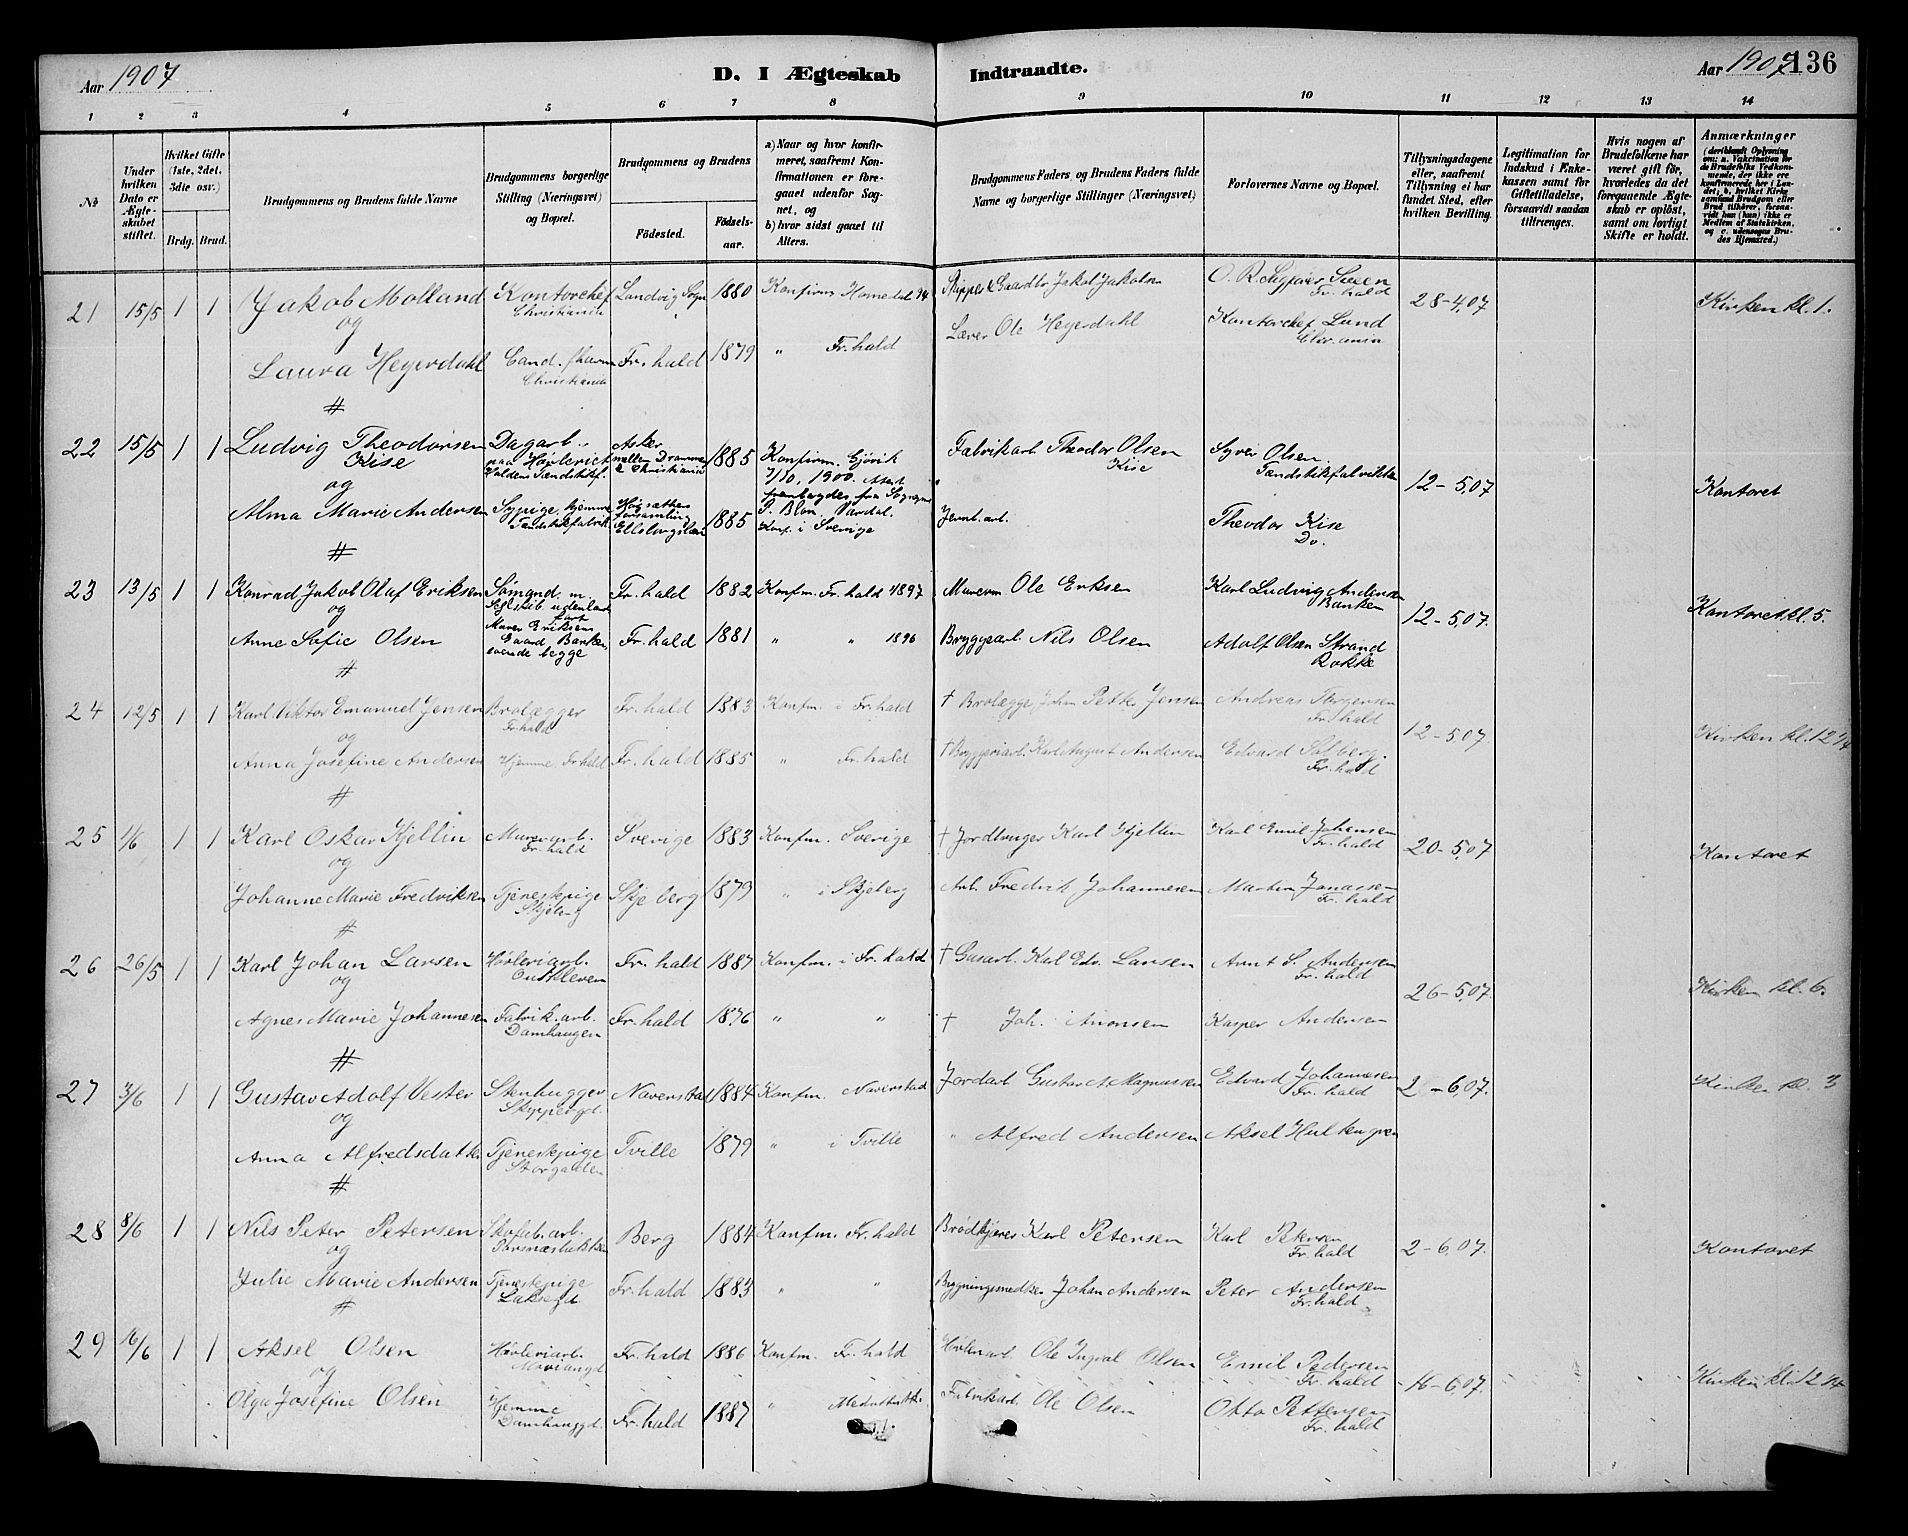 Aar 1907
D. I Ægteskab Indtraadte.
Aar 1907 136
1 2 3 4 5 6 7 8 9 10 11 12 13 14
№
Under hvilken Dato er Ægteskabet stiftet.
Hvilket Gifte (1ste, 2det, 3die osv.)
Brdg. Brud.
Brudgommens og Brudens fulde Navne
Brudgommens borgerlige Stilling (Næringsvei) og Bopæl.
Brudgommens og Brudens
Födested.
Födselsaar.
a) Naar og hvor konfirmeret, saafremt Konfirmationen er foregaaet udenfor Sognet, og
b) hvor sidst gaaet til Alters.
Brudgommens Faders og Brudens Faders fulde Navne og borgerlige Stillinger (Næringsvei)
Forlovernes Navne og Bopæl.
Tillysningsdagene eller, saafremt Tillysning ei har fundet Sted, efter hvilken Bevilling.
Legitimation for Indskud i Enkekassen samt for Giftetilladelse, forsaavidt saadan tiltrænges.
Hvis nogen af Brudefolkene har været gift för, hvorledes da det foregaaende Ægteskab er oplöst, samt om lovligt Skifte er holdt.
Anmærkninger
21 15/5 1 1 Jakob Molland Kontorchef Christiania Landvig Sogn 1880 Konfirm. Homedal 94 Skipper & Gaardbr. Jakob Jakobsen O. R. Sagfører Sveen Fr.hald 28-4,07 Kirken kl. 1.
og
Laura Heyerdahl Cand. pharm Christiania Fr. hald 1879 " Fr. hald Lærer Ole Heyerdahl Kontorchef Lund Chr.ania
#
22 15/5 1 1 Ludvig Theodorsen Kise Dagarb. paa Høvleriet Haldens Tændstikf. Asker mellem Drammen & Christiania 1885 Konfirm. Gjøvik 7/10, 1900. Fabrikarb Theodor Olsen Kise Syver Olsen Tændstikfabrikken 12-5,07 Kontoret
og
Alma Marie Andersen Sypige, hjemme Tændstikfabrik 1885 Konf. i Sverige Jernb. arb. Theodor Kise Do.
#
23 13/5 1 1 Konrad Jakob Olaf Eriksen Sømand m. Seglskib udenlands Fart Murer Eriksens Gaard Banken, svende begge Fr. hald 1882 Konfm. Fr. hald 1897 Murerm Ole Eriksen Karl Ludvig Andersen Banken 12-5,07. Kontoret kl. 5.
og
Anne Sofie Olsen Fr. hald 1881 " " 1896 Bryggearb Nils Olsen Adolf Olsen Strand Rokke
#
24 12/5 1 1 Karl Viktor Emanuel Jensen Brolægger Fr.hald Fr. hald 1883 Konfm. i Fr. hald † Brolægge, Johan Petter Jensen Andreas Torgersen Fr. hald 12-5,07 Kirken kl. 12 1/4
og
Anna Josefine Andersen Hjemme, Fr.hald Fr. hald 1885 " Fr. hald † Bryggeriarb. Karl August Andersen Edvard Solberg Fr. hald
#
25 1/6 1 1 Karl Oskar Kjellin Murerarb. Fr. hald Sverige 1883 Konfm. Sverige † Jordbruger Karl Kjellin Karl Emil Johansen Fr. hald 20-5,07 Kontoret
og
Johanne Marie Fredriksen Tjenestepige Skjeberg Skjeberg 1879 " i Skjeberg Arb. Fredrik Johannesen Martin Jonassen Fr. hald
#
26 26/5 1 1 Karl Johan Larsen Høvleriarb. Fr. hald 1887 Konfm. i Fr. hald † Gasarb. Karl Edv. Larsen Arnt S. Andersen Fr. hald 26-5,07. Kirken kl. 6.
og
Agnes Marie Johannesen Fabrik. arb. Damhaugen Fr. hald 1876 " " † Joh. Aronsen Kasper Andersen
#
27 3/6 1 1 Gustav Adolf Vester Stenhugger Skippergd. Naverstad 1884 Konfm. Naverstad Jordarb Gustav A. Magnussen Edvard Johannesen Fr. hald 2-6,07. Kirken kl. 3
og
Anna Alfredsdatter Tjenestepige Storgaden Tville 1879 " i Tville " Alfred Andersen Aksel Hultengren
#
28 8/6 1 1 Nils Peter Petersen Skofab. arb. Berg 1884 Konfm. Fr. hald Brødkjører Karl Petersen Karl Petersen Fr. hald 2-6,07. Kontoret
og
Julie Marie Andersen Tjenestepige Fr. hald 1883 " " Bygningssnedker Johan Andersen Peter Andersen Fr. hald
#
29 16/6 1 1 Aksel Olsen Høvleriarb. Fr. hald 1886 Konfm. Fr. hald Høvleriarb Ole Ingval Olsen Emil Pedersen Fr. hald 16-6,07. Kirken kl. 12 1/4
og
Olga Josefine Olsen Hjemme Damhauggd. Fr. hald 1887 " Fabrikarb Ole Olsen Otto Pettersen Fr. hald